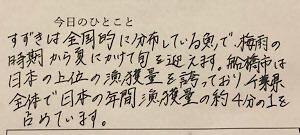 今日のひとこと
すずきは全国的に分布している魚で、梅雨の
時期から夏にかけて旬を迎えます。船橋市は
日本の上位の漁獲量を誇っており千葉県
全体で日本の年間漁獲量の約4分の1を
占めています。